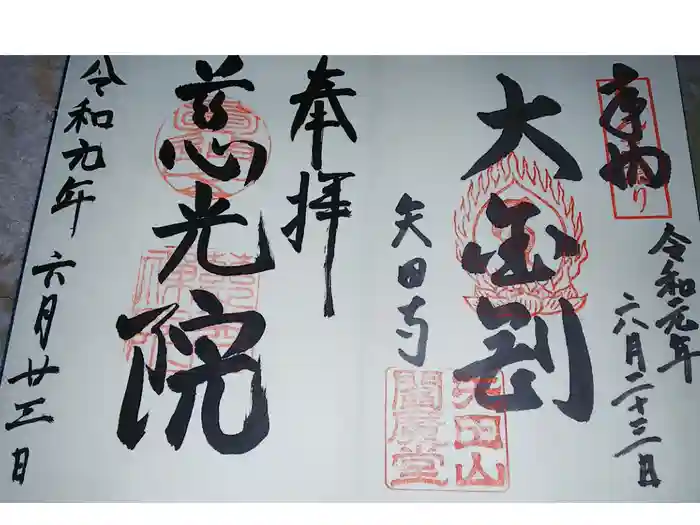 奉納
令和元年
六月二十三日
大金剛
矢田寺
矢田山
閻魔堂
奉拝
慈光院
令和元年 六月廿三日